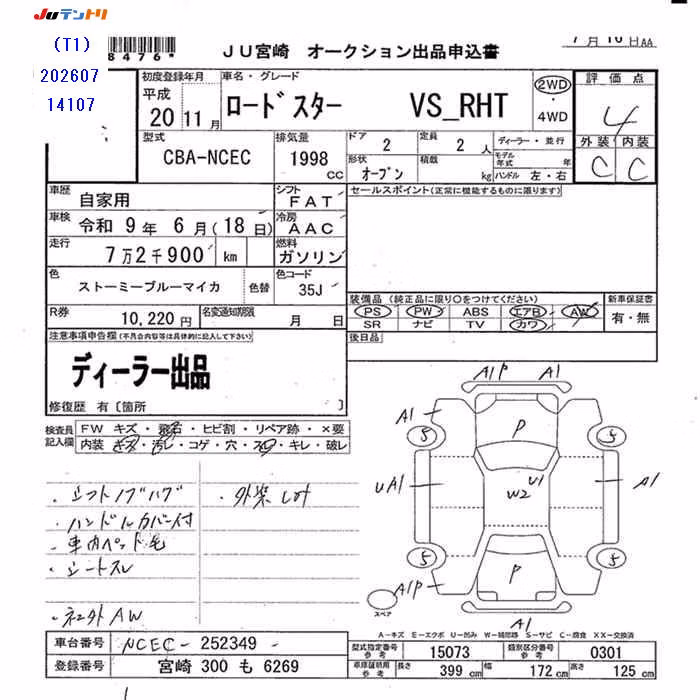 JUテントリ
(T1)
202607
14107
8476*
JU宮崎 オークション出品申込書
7月16日AA
初度登録年月
平成
20 11月
車名・グレード
ロードスター VS_RHT
2WD
・
4WD
評価点
4
外装 内装
C C
型式
CBA-NCEC
排気量
1998
CC
ドア
2
定員
2 人
形状
オープン
積載
kg
ディーラー・並行
モデル年式 年
ハンドル 左・右
車歴
自家用
シフト
FAT
セールスポイント(正常に機能するものに限ります)
車検
令和 9年 6月(18日)
冷房
AAC
走行
7万2千900 km
燃料
ガソリン
色
ストーミーブルーマイカ
色替
色コード
35J
装備品 (純正品に限り○をつけてください)
PS PW ABS エアB AW
SR ナビ TV カワ
新車保証書
有・無
R券
10,220円
名変通知期限
月 日
後日品
注意事項申告欄(不具合内容等は具体的に記入して下さい)
ディーラー出品
修復歴 有〔箇所 〕
検査員
記入欄
FW キズ・飛石・ヒビ割・リペア跡・×要
内装 キズ・汚レ・コゲ・穴・スレ・キレ・破レ
・シフトノブハゲ
・ハンドルカバー付
・車内ペット毛
・シートスレ
・ネコ外AW
A1P A1
A1
5 P 5
UA1 U1 A1
W2
5 P 5
A1P
A1
スペア
A-キズ E-エクボ U-凹み W-補修跡 S-サビ C-腐食 XX-交換済
車台番号
NCEC-252349-
登録番号
宮崎 300 も 6269
型式指定番号
参考
15073
類別区分番号
参考
0301
車庫証明用
参考
長さ
399 cm
幅
172 cm
高さ
125 cm